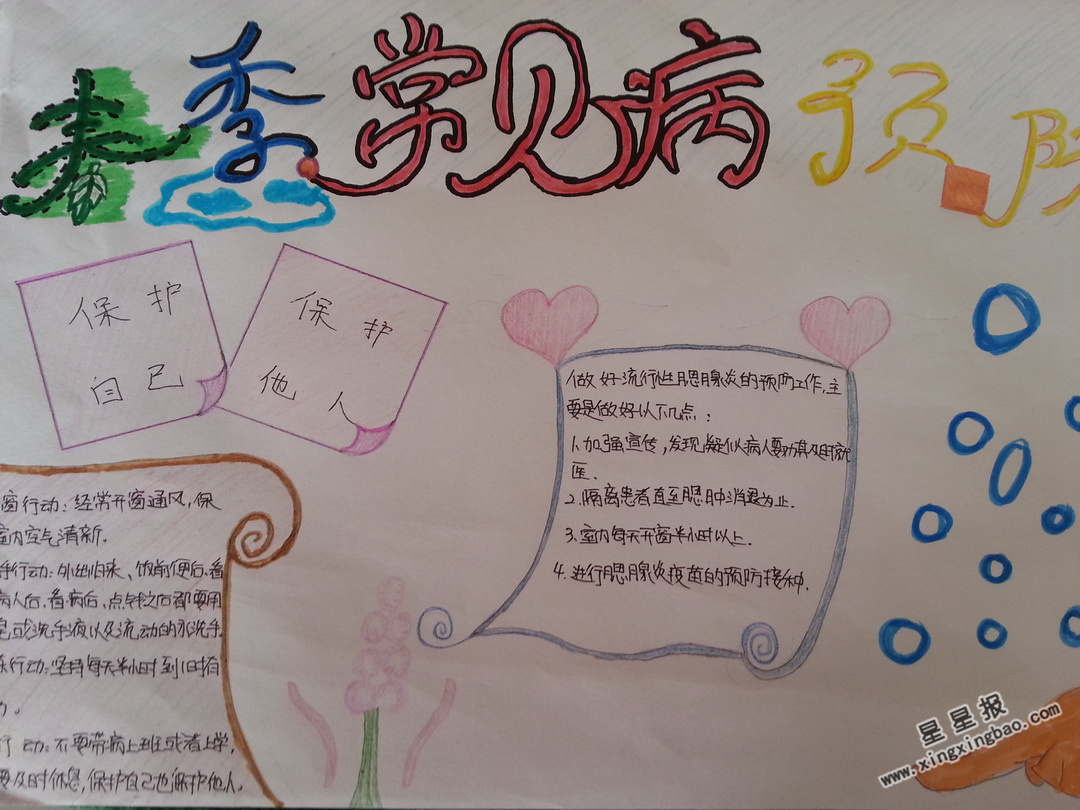 春季常见病预防
保护
自己
保护
他人
做好流行性腮腺炎的预防工作,主
要是做好以下几点:
1.加强宣传,发现凝似病人要劝其及时就
医.
2.隔离患者直至腮肿消退为止.
3.室内每天开窗半小时以上.
4.进行腮腺炎疫苗的预防接种.
窗行动:经常开窗通风,保
室内空气清新.
手行动:外出归来、饭前便后、看
病人后、看病后、点钱之后都要用
皂或洗手液以及流动的水洗手.
行动:坚持每天半小时到1小时
行动:不要带病上班或者上学,
要及时休息,保护自己也保护他人.
星星报
www.xingxingbao.com